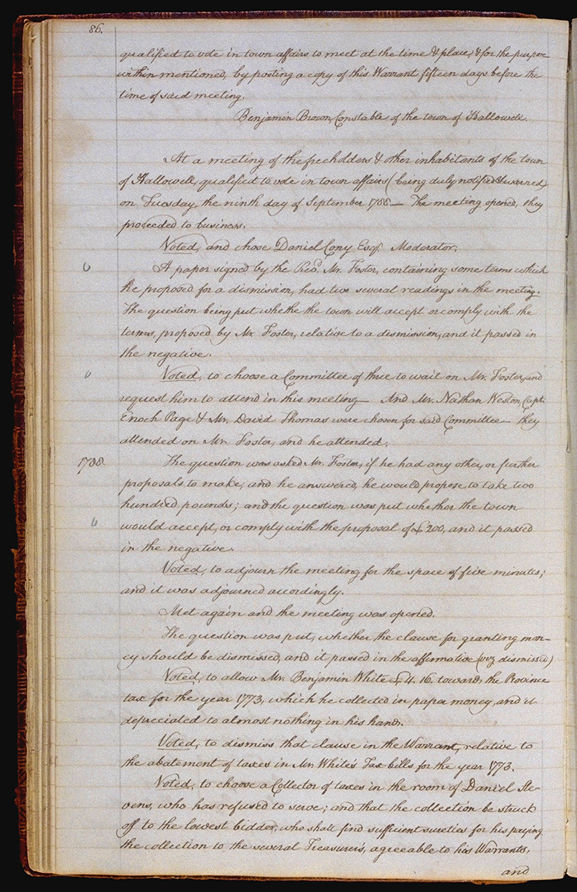 86.
qualified to vote in town affairs to meet at the time & place, & for the purpose
within mentioned, by posting a copy of this Warrant fifteen days before the
time of said meeting
Benjamin Brown Constable of the town of Hallowell.
At a meeting of the freeholders & other inhabitants of the town
of Hallowell, qualified to vote in town affairs (being duly notified & warned)
on Tuesday, the ninth day of September 1788 — The meeting opened, they
proceeded to business.
Voted, and chose Daniel Cony Esqr. Moderator.
A paper signed by the Revd. Mr. Foster, containing some terms which
he proposed for a dismission, had two several readings in the meeting.
The question being put whether the town will accept or comply with the
terms, proposed by Mr. Foster, relative to a dismission, and it passed in
the negative.
Voted, to choose a Committee of three to wait on Mr. Foster, and
request him to attend in his meeting — And Mr. Nathan Weston, Capt.
Enoch Page & Mr. David Thomas were chosen for said Committee — they
attended on Mr. Foster, and he attended.
1788
The question was asked Mr. Foster, if he had any other, or further
proposals to make, and he answered, he would propose, to take two
hundred pounds; and the question was put whether the town
would accept, or comply with the proposal of £200, and it passed
in the negative.
Voted, to adjourn the meeting for the space of five minutes;
and it was adjourned accordingly.
Met again and the meeting was opened.
The question was put, whether the clause for granting mon-
ey should be dismissed, and it passed in the affirmative (viz dismiss'd)
Voted, to allow Mr. Benjamin White £4. 16. towards the Province
tax for the year 1773, which he collected in paper money, and it
depreciated to almost nothing in his hands.
Voted, to dismiss that clause in the Warrant, relative to
the abatement of taxes in Mr. White's Tax bills for the year 1773.
Voted, to choose a Collector of taxes in the room of Daniel Ste-
vens, who has refused to serve; and that the collection be struck
off to the lowest bidder, who shall find sufficient sureties for his paying
the collection to the several Treasurers, agreeable to his Warrants,
and